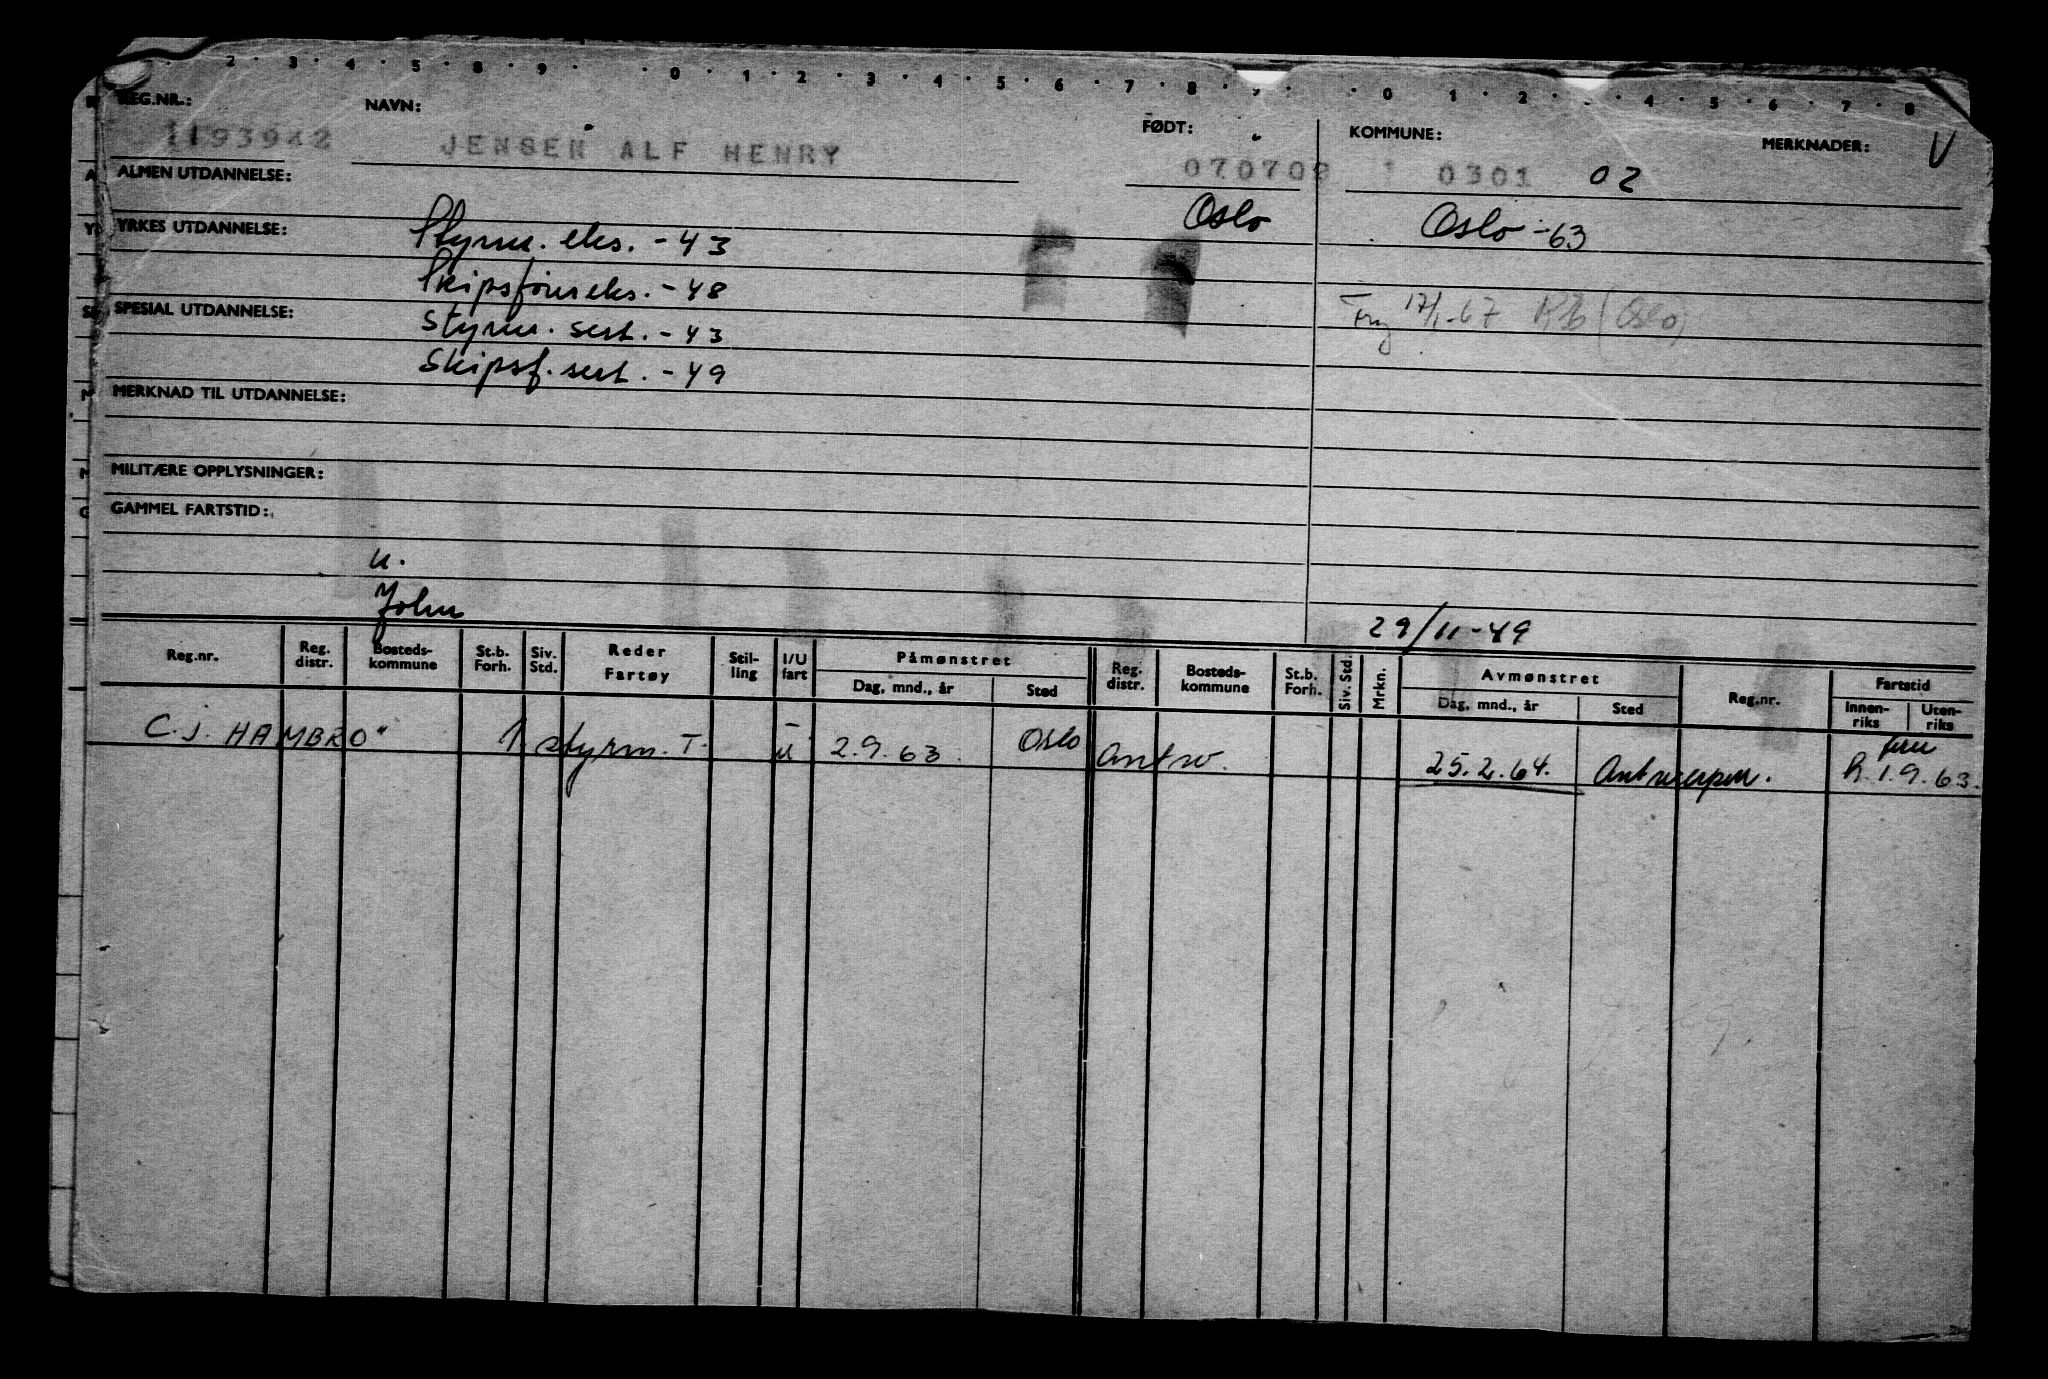 2 · 3 · 4 · 5 · 8 · 9 · 0 · 1 · 2 · 3 · 4 · 5 · 6 · 7 · 8 · 0 1 · 2 · 4 · 5 · 6 · 7 · 8
REG.NR.: NAVN: FØDT: KOMMUNE: MERKNADER: V
1193942 JENSEN ALF HENRY 070708 0301 02
ALMEN UTDANNELSE:
Oslo Oslo -63
YRKES UTDANNELSE: Styrm. eks. - 43
Skipsførereks. - 48
17/1-67 (Oslo)
SPESIAL UTDANNELSE: Styrm. sert. - 43
Skipsf. sert. - 49
MERKNAD TIL UTDANNELSE:
MILITÆRE OPPLYSNINGER:
GAMMEL FARTSTID:
u.
John 29/11-49
Reg.nr. Reg. distr. Bosteds-kommune St.b. Forh. Siv. Std. Reder Fartøy Stil-ling I/U fart Påmønstret Reg. distr. Bosteds-kommune St.b. Forh. Siv. Std. Mrkn. Avmønstret Reg.nr. Fartstid
Dag, mnd., år Sted Dag, mnd., år Sted Innen-riks Uten-riks
C.J. HAMBRO" 1 styrm. T. u 2.9.63. Oslo Antw. 25.2.64. Antwerpen. h. 1.9.63.